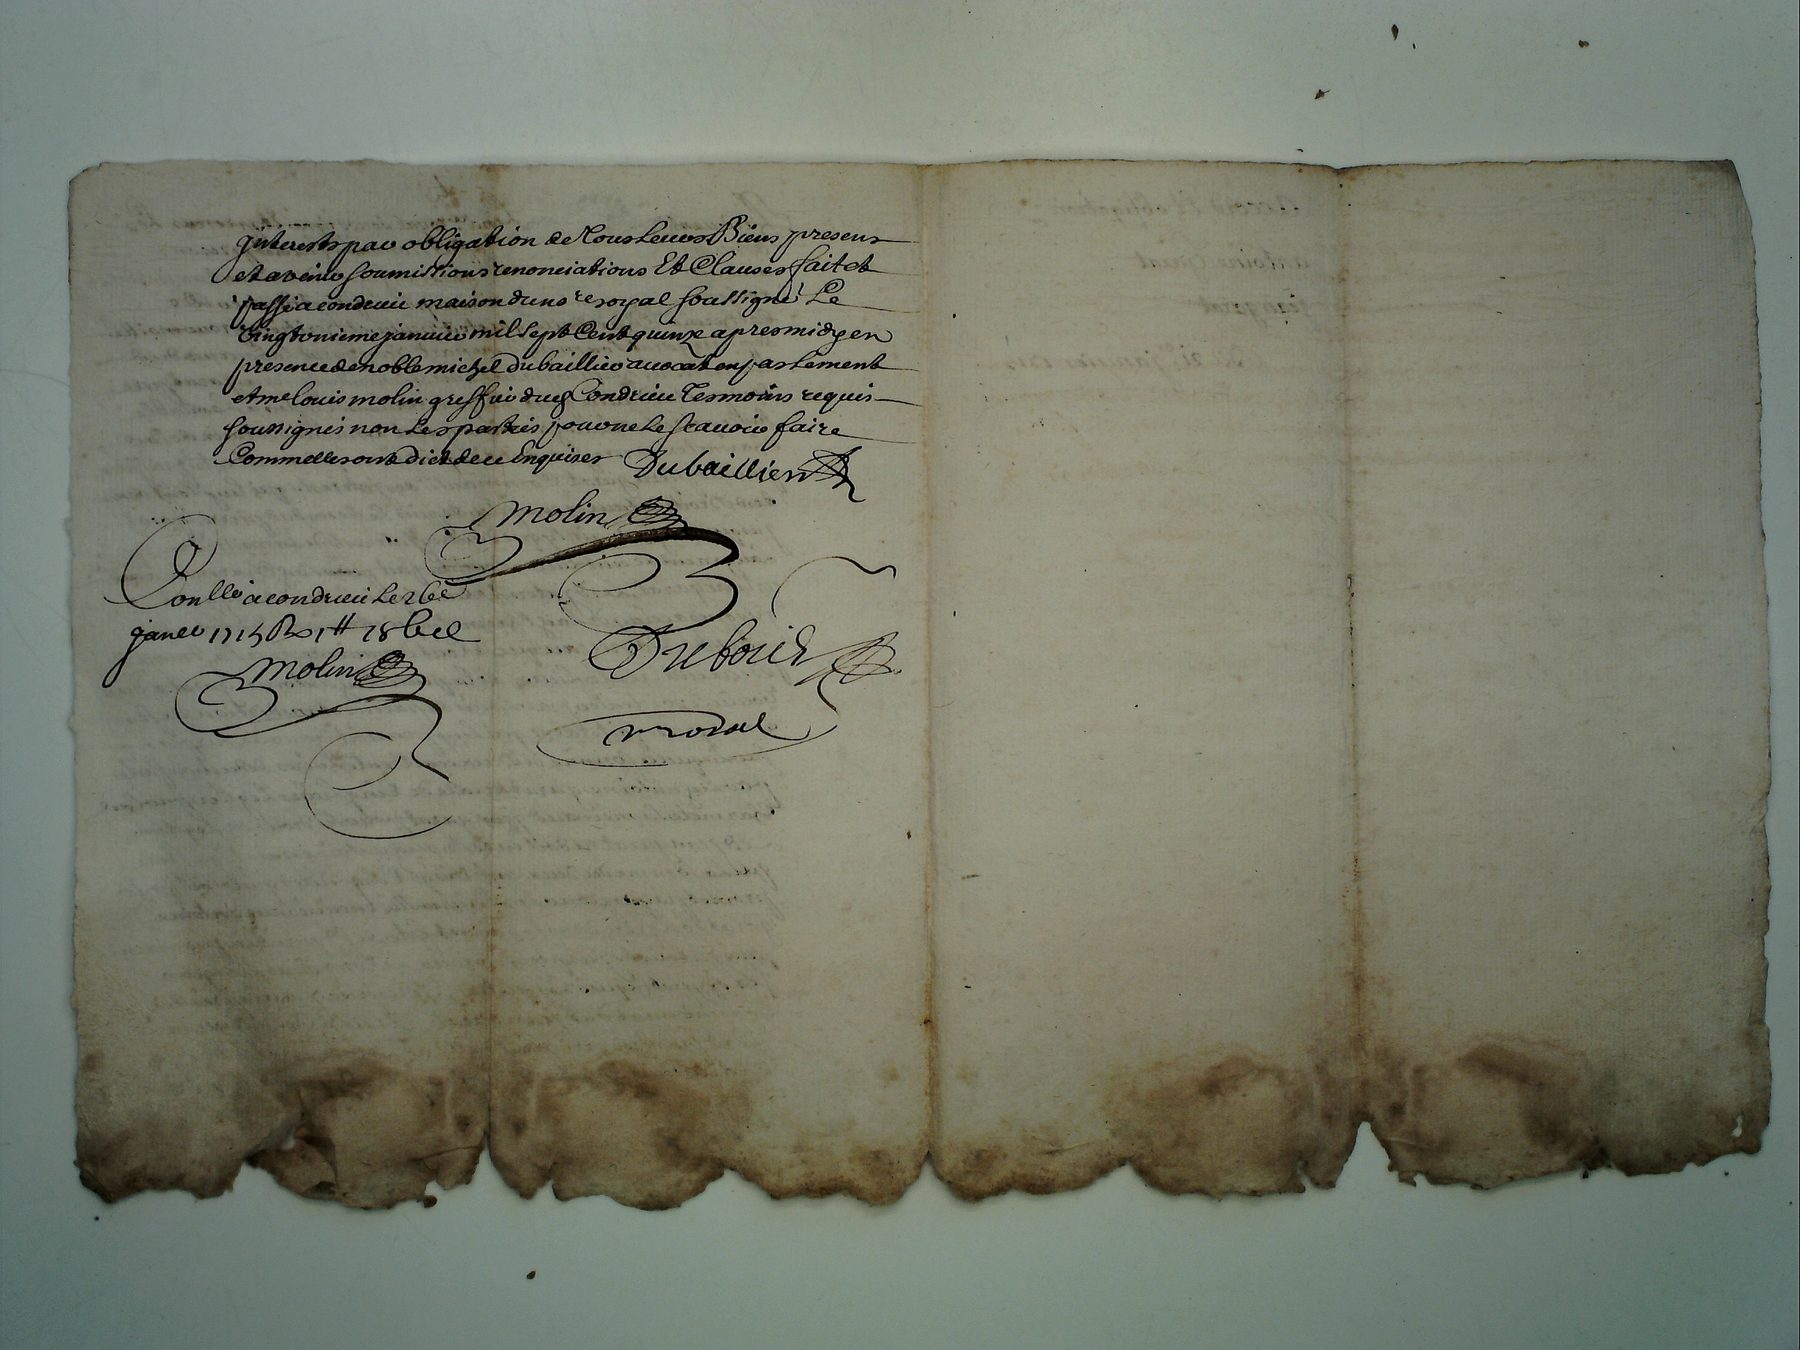 jnterests par obligation de tous leurs Biens presens
et avenir soumissions renonciations Et Clauses fait et
passé a condrieu maison du no re royal soussigné Le
vingtunieme janvier mil sept Cent quinze apres midy en
presence de noble michel Dubaillier avocat en parlement
et me louis molin greffier dud Condrieu Tesmoins requis
soussignés non Les parties pour ne Le scavoir faire
Comme elles ont dict de ce Enquises Dubaillier
molin
Conllé a condrieu Le 26e
janvr 1715 Rx 1tt
molin